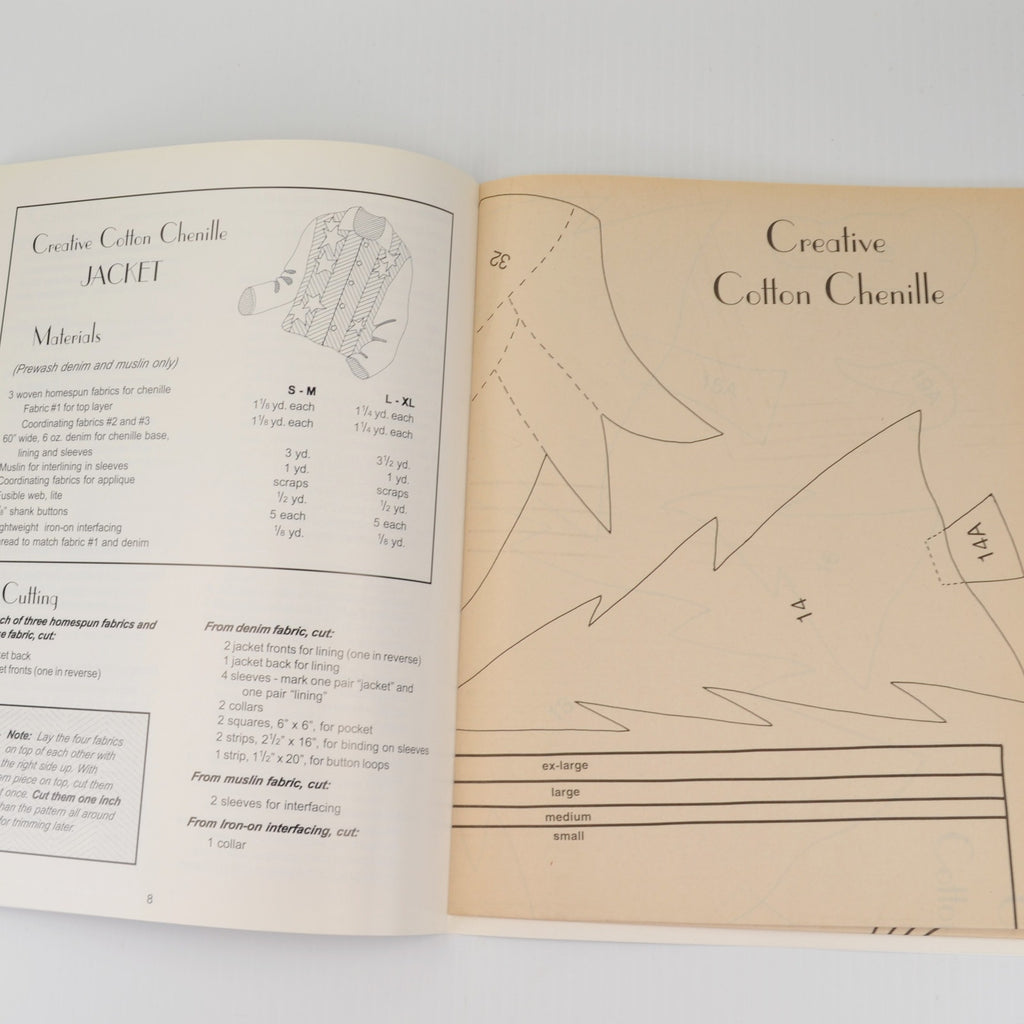 Creative Cotton Chenille
JACKET
Materials
(Prewash denim and muslin only)
S - M L - XL
3 woven homespun fabrics for chenille
Fabric #1 for top layer 1 1/8 yd. each 1 1/4 yd. each
Coordinating fabrics #2 and #3 1 1/8 yd. each 1 1/4 yd. each
60" wide, 6 oz. denim for chenille base,
lining and sleeves 3 yd. 3 1/2 yd.
Muslin for interlining in sleeves 1 yd. 1 yd.
Coordinating fabrics for applique scraps scraps
usible web, lite 1/2 yd. 1/2 yd.
" shank buttons 5 each 5 each
ghtweight iron-on interfacing 1/8 yd. 1/8 yd.
read to match fabric #1 and denim
Cutting
ch of three homespun fabrics and
e fabric, cut:
et back
et fronts (one in reverse)
Note: Lay the four fabrics
on top of each other with
the right side up. With
rn piece on top, cut them
t once. Cut them one inch
han the pattern all around
for trimming later.
From denim fabric, cut:
2 jacket fronts for lining (one in reverse)
1 jacket back for lining
4 sleeves - mark one pair "jacket" and
one pair "lining"
2 collars
2 squares, 6" x 6", for pocket
2 strips, 2 1/2" x 16", for binding on sleeves
1 strip, 1 1/2" x 20", for button loops
From muslin fabric, cut:
2 sleeves for interfacing
From Iron-on interfacing, cut:
1 collar
8
32
Creative
Cotton Chenille
14A
14
ex-large
large
medium
small